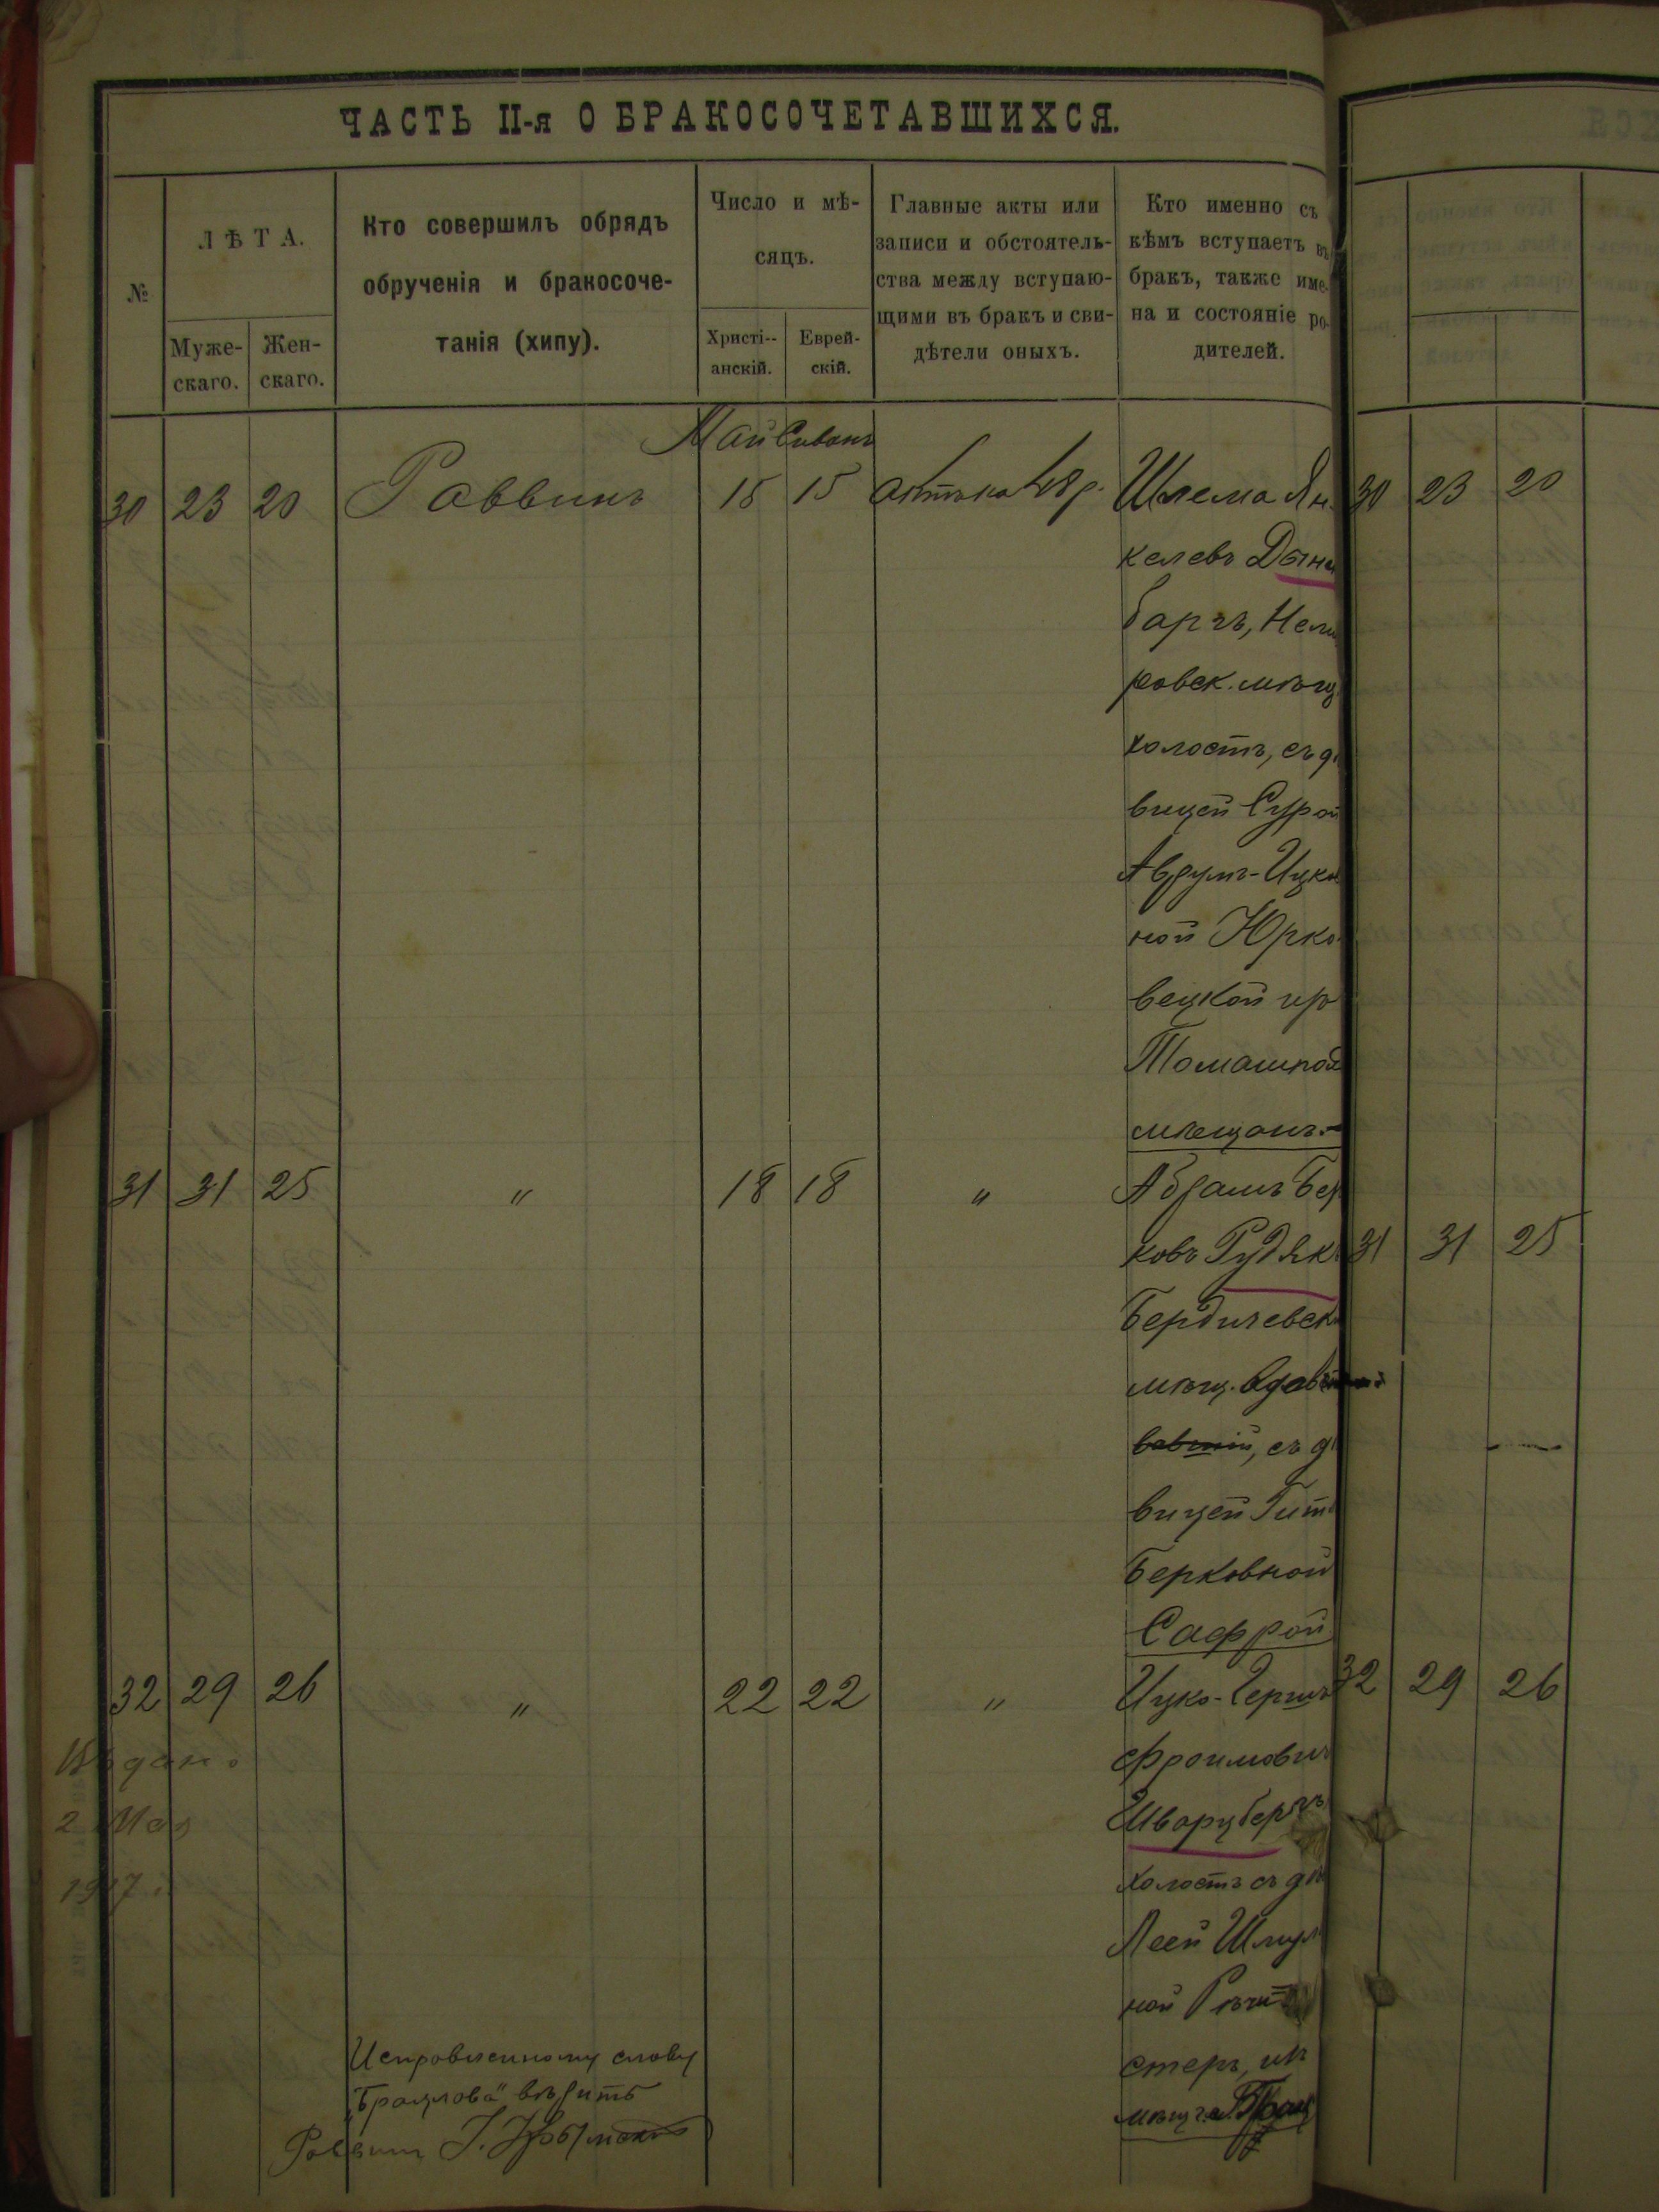 ЧАСТЬ II-я О БРАКОСОЧЕТАВШИХСЯ.
№
ЛѢТА.
Муже-
скаго.
Жен-
скаго.
Кто совершилъ обрядъ
обрученія и бракосоче-
танія (хипу).
Число и мѣ-
сяцъ.
Христі--
анскій.
Еврей-
скій.
Главные акты или
записи и обстоятель-
ства между вступаю-
щими въ бракъ и сви-
дѣтели оныхъ.
Кто именно съ
кѣмъ вступаетъ въ
бракъ, также име-
на и состояніе ро-
дителей.
Май Сиванъ
30 23 20 Раввинъ 15 15 Шлема Ян-
келевъ Дына
баргъ, Неми
ровск. мѣщ.
холостъ, съ дѣ
вицей Сурой
Аврумъ-Ицко
ной Юрко
вецкой
Томашпол
мѣщанъ.
31 31 25 " 18 18 " Абрамъ Бер
ковъ Рудяк
Бердичевск
мѣщ.
съ дѣ
вицей Гит
Берковной
Сафрой
32 29 26 " 22 22 " Ицко-Герш
Фроимович
Шварцбергъ
холостъ съ дѣв
Леей Шмул
ной
стеръ,
мѣщ.
2 Мая
1917 г.
Исправленному слову
"Брацлова" вѣрить
Раввинъ
30 23 20
31 31 25
32 29 26